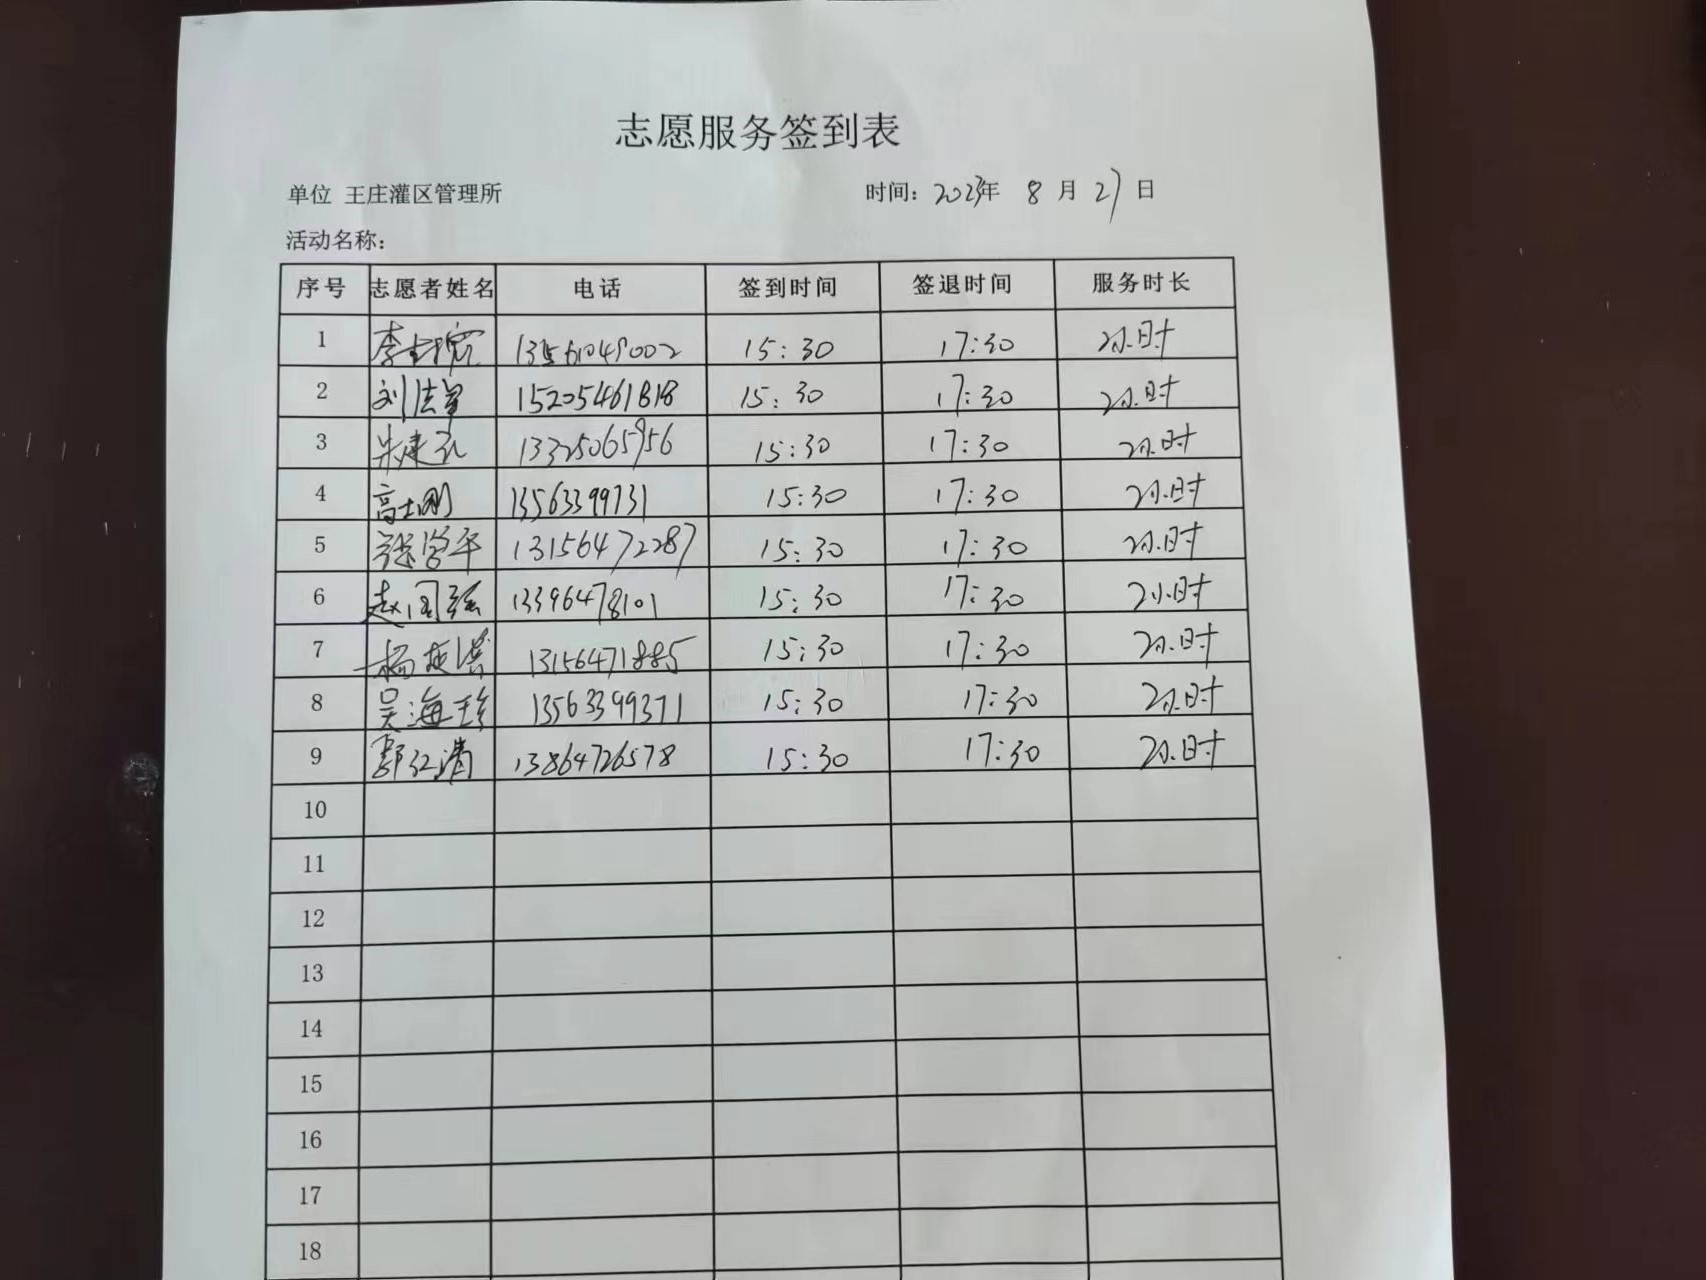 志愿服务签到表
单位 王庄灌区管理所 时间：2023年 8月27日
活动名称：
序号 志愿者姓名 电话 签到时间 签退时间 服务时长
1 李 13561049002 15:30 17:30 2小时
2 刘 15205461818 15:30 17:30 2小时
3 朱建礼 13325065956 15:30 17:30 2小时
4 高士刚 13563399731 15:30 17:30 2小时
5 张学平 13156472287 15:30 17:30 2小时
6 赵国强 13396478101 15:30 17:30 2小时
7 杨 13156471885 15:30 17:30 2小时
8 吴海珍 13563399371 15:30 17:30 2小时
9 郭红清 13864726578 15:30 17:30 2小时
10
11
12
13
14
15
16
17
18